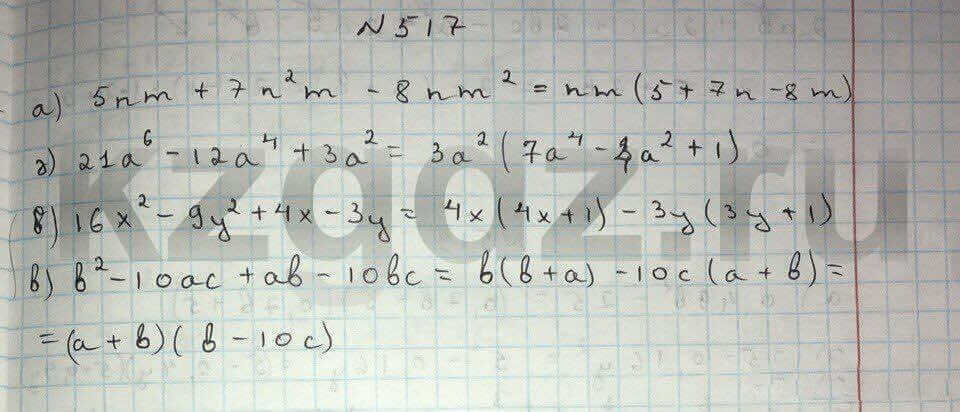 N 517
а) 5nm + 7n²m - 8nm² = nm (5 + 7n - 8m)
д) 21a⁶ - 12a⁴ + 3a² = 3a² (7a⁴ - 4a² + 1)
8) 16x² - 9y² + 4x - 3y = 4x(4x+1) - 3y(3y+1)
в) b² - 10ac + ab - 10bc = b(b+a) - 10c(a+b) =
= (a+b)(b - 10c)
kzgdz.ru